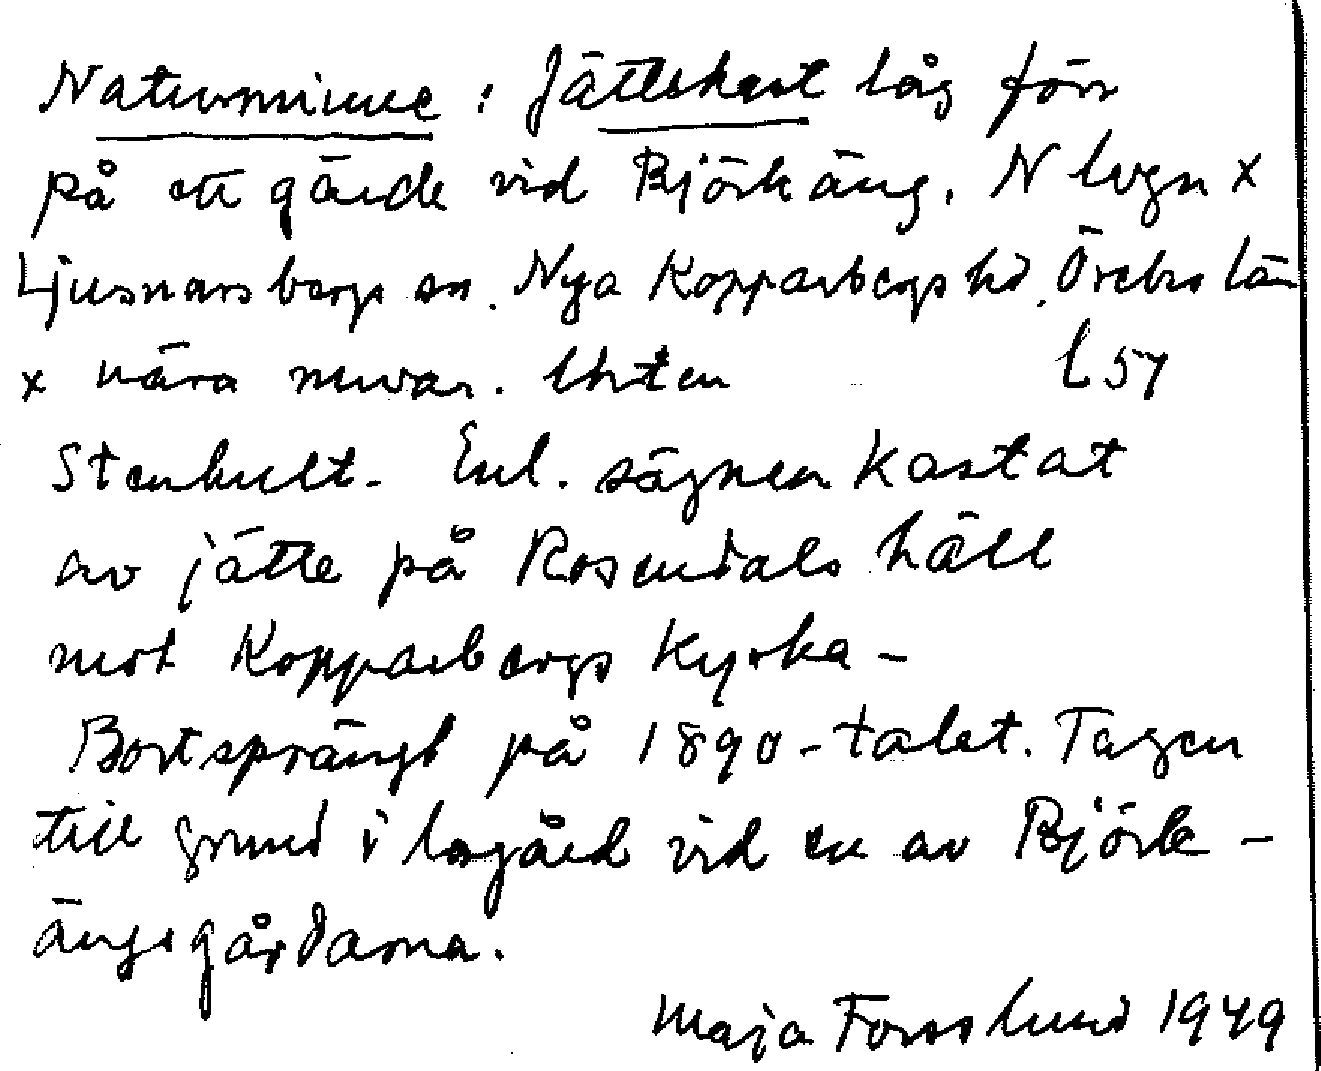 Naturminne : Jättekast låg förr
på ett gärde vid Björkäng, N lvgn x
Ljusnarsbergs sn. Nya Kopparbergs hd. Örebro län
x nära nuvar. 157
Stenhult - Enl. sägnen kastat
av jätte på Rosendals häll
mot Kopparbergs kyrka -
Bortsprängt på 1890-talet. Tagen
till grund i lagård vid en av Björk-
ängsgårdarna.
Maja Forsslund 1949